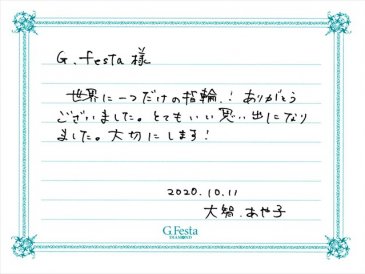 G.festa様
世界に一つだけの指輪!ありがとう
ございました。とてもいい思い出になり
ました。大切にします!
2020.10.11
大智.あや子
G.Festa
DIAMOND